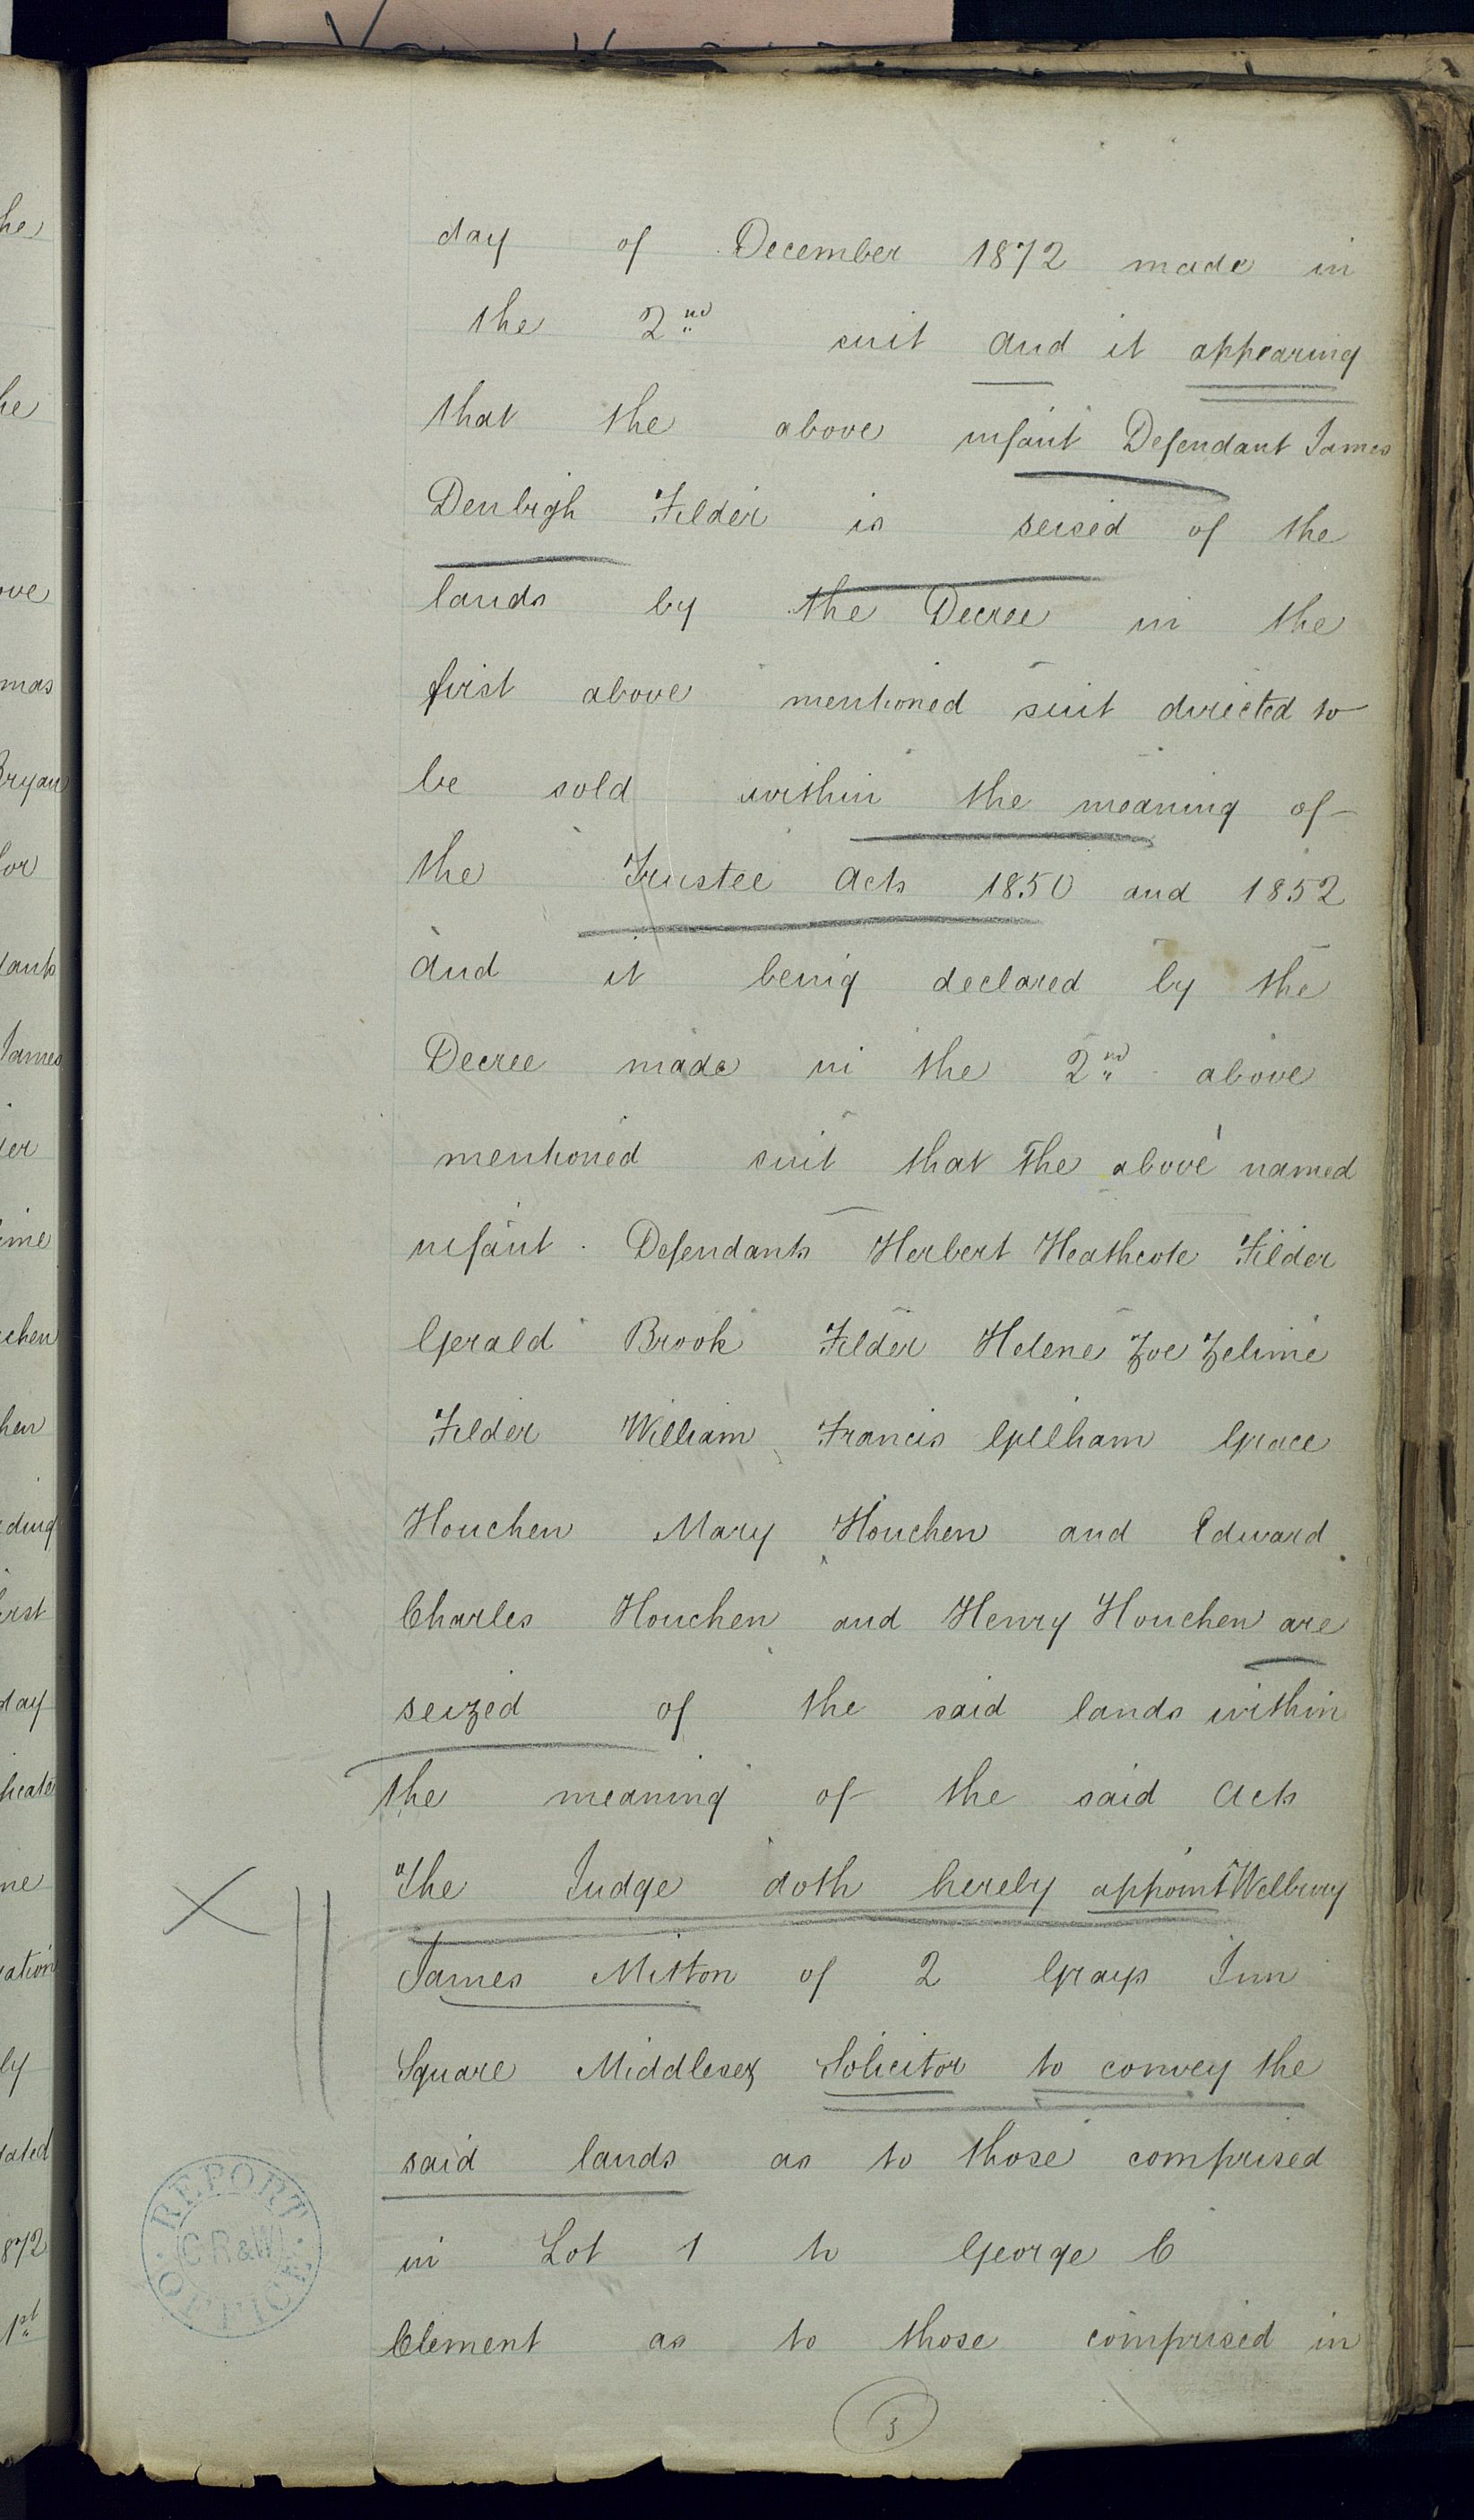 day of December 1872 made in
the 2nd suit and it appearing
that the above infant Defendant James
Denbigh Filder is seised of the
lands by the Decree in the
first above mentioned suit directed to
be sold within the meaning of
the Trustee Acts 1850 and 1852
And it being declared by the
Decree made in the 2nd above
mentioned suit that the above named
infant Defendants Herbert Heathcote Filder
Gerald Brook Filder Helene Zoe Zelime
Filder William Francis Gillham Grace
Houchen Mary Houchen and Edward
Charles Houchen and Henry Houchen are
seized of the said lands within
the meaning of the said Acts
The Judge doth hereby appoint Welbury
James Mitton of 2 Grays Inn
Square Middlesex Solicitor to convey the
said lands as to those comprised
in Lot 1 to George C
Clement as to those comprised in
3
REPORT OFFICE
C R & W
he
he
ove
mas
Bryan
for
dants
James
der
lime
chen
hen
ding
irst
day
ficate
me
cation
ly
dated
872
1st